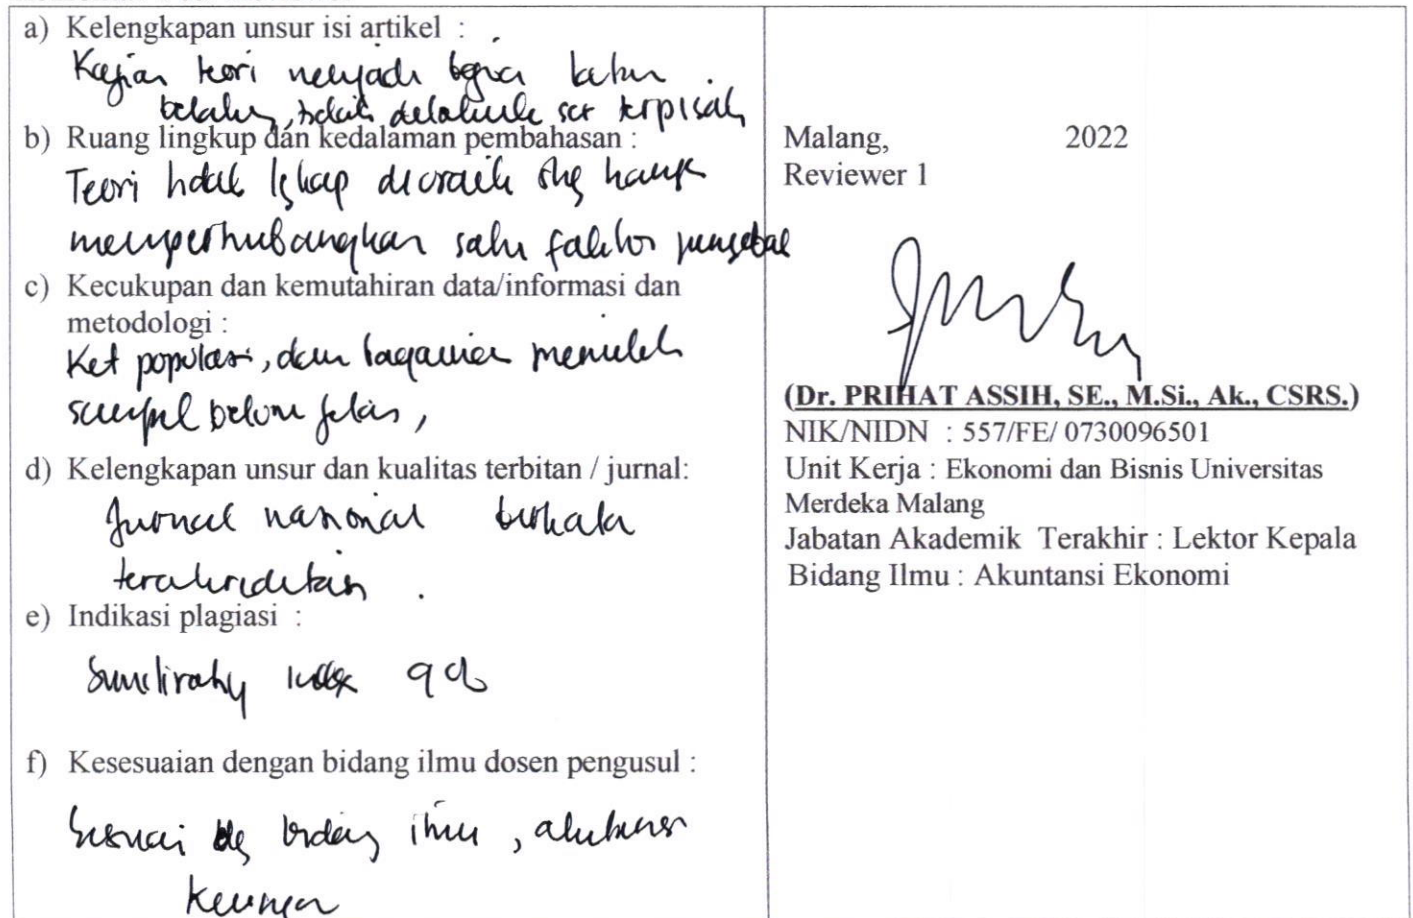 a) Kelengkapan unsur isi artikel :
Kajian teori menjadi bagian latar
belakang, tidak dilakukan scr terpisah
b) Ruang lingkup dan kedalaman pembahasan :
Teori tidak lgkap diuraik shg hanya
memperhubangkan satu faktor penyebab
c) Kecukupan dan kemutahiran data/informasi dan
metodologi :
Ket populasi, dan bagaimana memilih
sampel belum jelas,
d) Kelengkapan unsur dan kualitas terbitan / jurnal:
Jurnal nasional berkala
terakreditasi.
e) Indikasi plagiasi :
Similirity index 9
f) Kesesuaian dengan bidang ilmu dosen pengusul :
Sesuai dg bidang ilmu, akuntansi
Keuangan
Malang, 2022
Reviewer 1
(Dr. PRIHAT ASSIH, SE., M.Si., Ak., CSRS.)
NIK/NIDN : 557/FE/ 0730096501
Unit Kerja : Ekonomi dan Bisnis Universitas
Merdeka Malang
Jabatan Akademik Terakhir : Lektor Kepala
Bidang Ilmu : Akuntansi Ekonomi